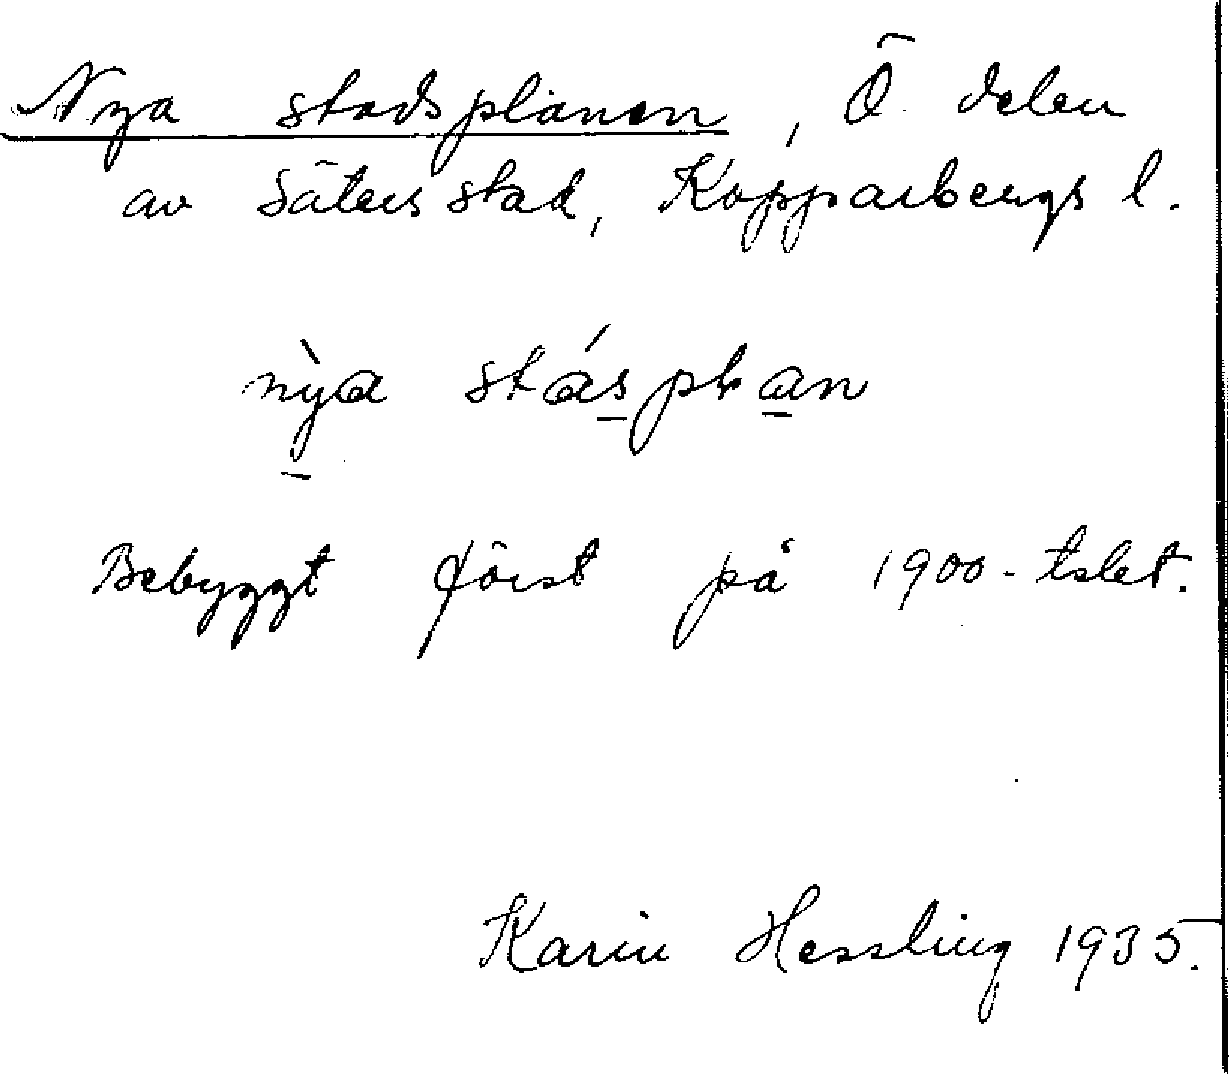 Nya stadsplanen, Ö. delen
av Säters stad, Kopparbergs l.
nỳa stásplan
Bebyggt först på 1900-talet.
Karin Hessling 1935.